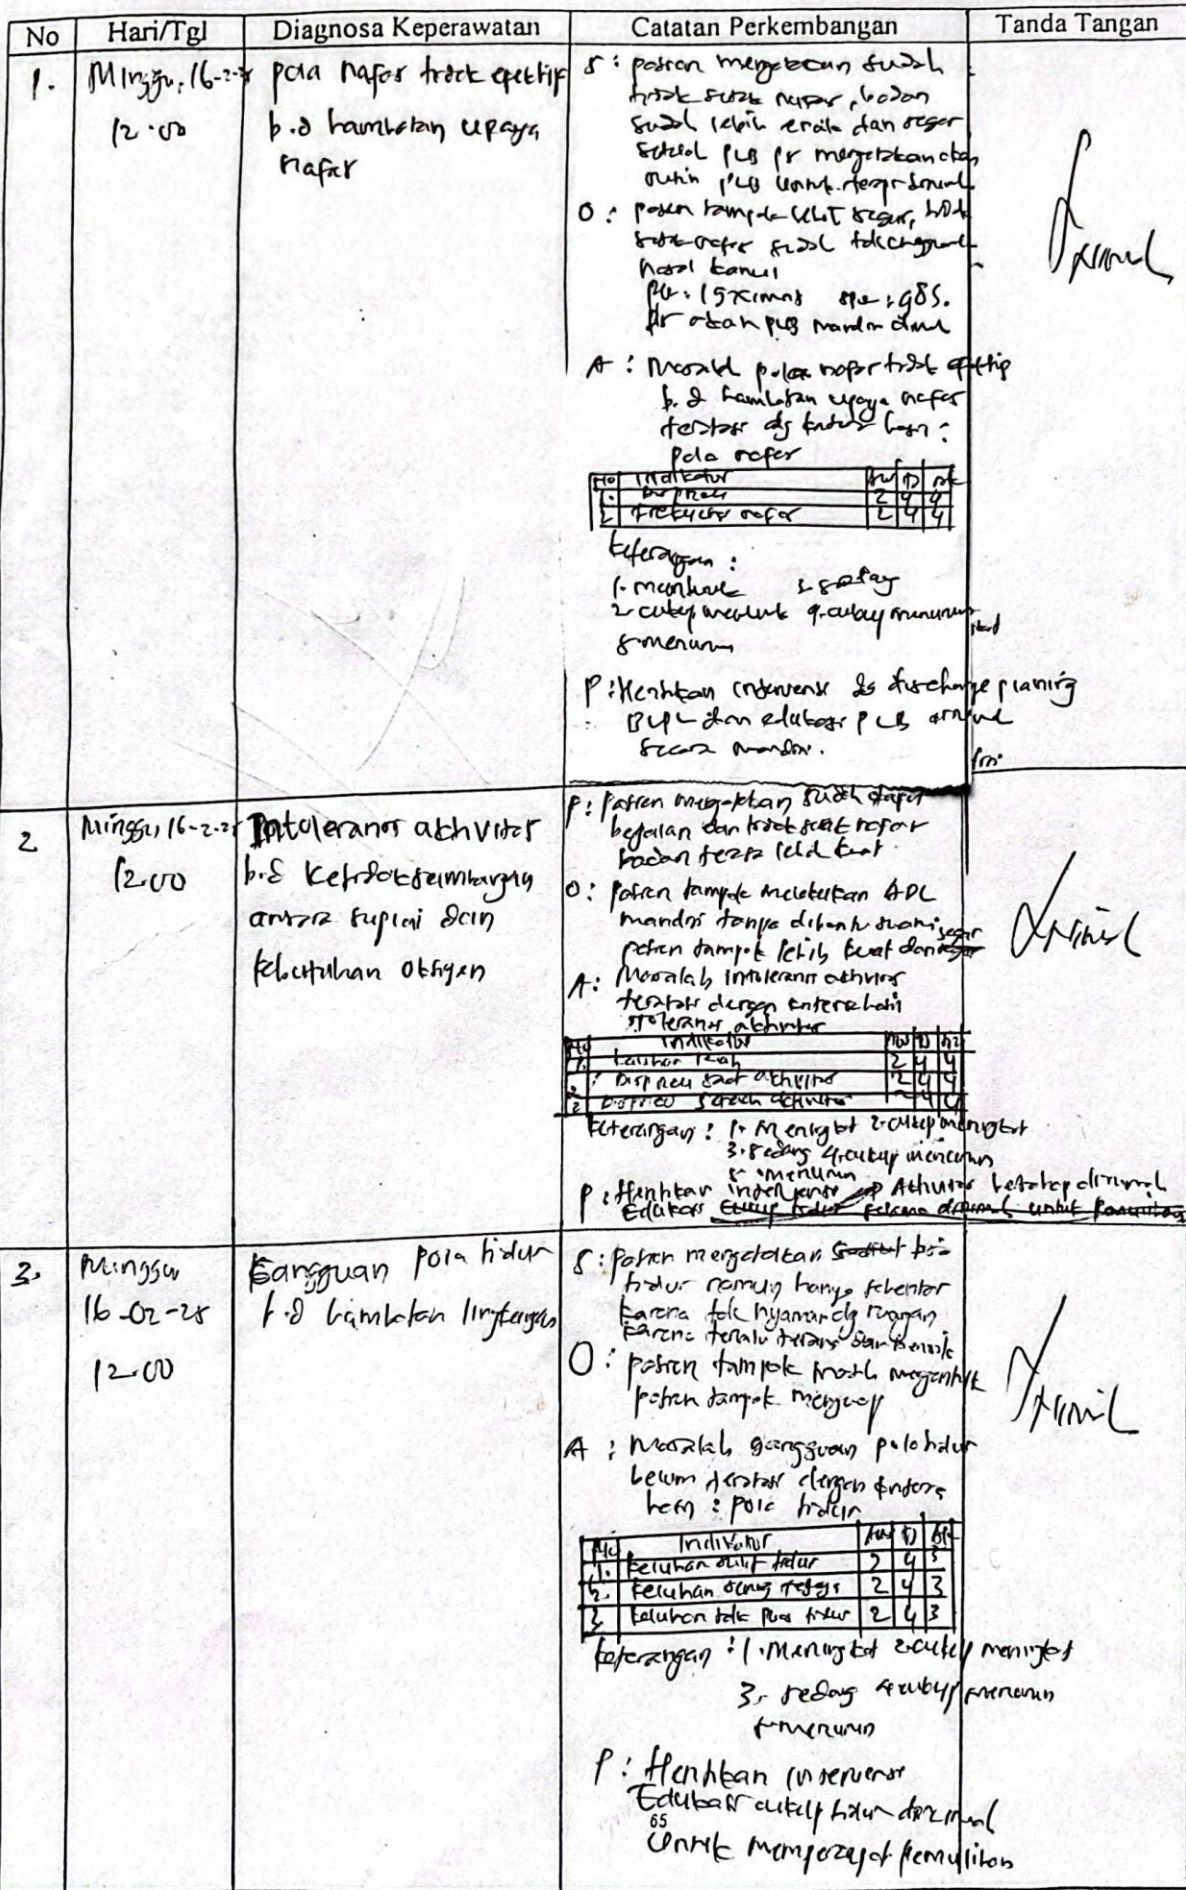 No Hari/Tgl Diagnosa Keperawatan Catatan Perkembangan Tanda Tangan
1. Minggu, 16-2-25
12.00
pola nafas tidak efektif
b.d hambatan upaya
nafas
S: pasien mengatakan sudah
tidak sesak nafas, badan
sudah lebih enak dan segar
setelah PLB ps mengatakan akan
rutin PLB untuk terapi dirumah
O: pasien tampak lebih segar, tidak
sesak nafas sudah tak
nasal kanul
ps akan PLB mandiri
A: Masalah pola nafas tidak efektip
b.d hambatan upaya nafas
teratasi dg kriteria hasil:
pola nafas
No Indikator
1. Dispneu 2 4 4
2. Frekuensi nafas 2 4 4
Keterangan:
3. sedang
4. cukup menurun
5. menurun
P: Hentikan intervensi dg discharge planing
BLPL dan edukasi PLB
secara mandiri.
2 Minggu, 16-2-25
12.00
Intoleransi aktivitas
b.d Ketidakseimbangan
antara suplai dan
kebutuhan oksigen
P: Pasien mengatakan sudah dapat
bejalan dan tidak sesak nafas
badan terasa lebih kuat.
O: pasien tampak melakukan ADL
mandiri tanpa dibantu suami
pasien tampak lebih kuat dan segar
A: Masalah intoleransi aktivitas
teratasi dengan
toleransi aktivitas
No Indikator
1. Keluhan lelah 2 4 4
2. Dispneu saat aktivitas 2 4 4
3 Dispneu setelah aktivitas
Keterangan: 1. Meningkat 2. cukup meningkat
3. sedang 4. cukup menurun
5. menurun
P: Hentikan intervensi Aktivitas bertahap dirumah
Edukasi
3. Minggu
16-02-25
12.00
Gangguan pola tidur
b.d hambatan lingkungan
S: pasien mengatakan bisa
tidur namun hanya sebentar
karena tak nyaman dg ruangan
karena terlalu terang dan
O: pasien tampak masih mengantuk
pasien tampak menguap
A: Masalah gangguan pola tidur
belum teratasi dengan
hasil: pola tidur
No Indikator
1. Keluhan sulit tidur 2 4 3
2. Keluhan sering terjaga 2 4 3
3. Keluhan tak puas tidur 2 4 3
Keterangan: 1. Meningkat 2. cukup meningkat
3. sedang 4. cukup menurun
5. menurun
P: Hentikan intervensi
Edukasi cukup tidur dirumah
65
Untuk mempercepat pemulihan